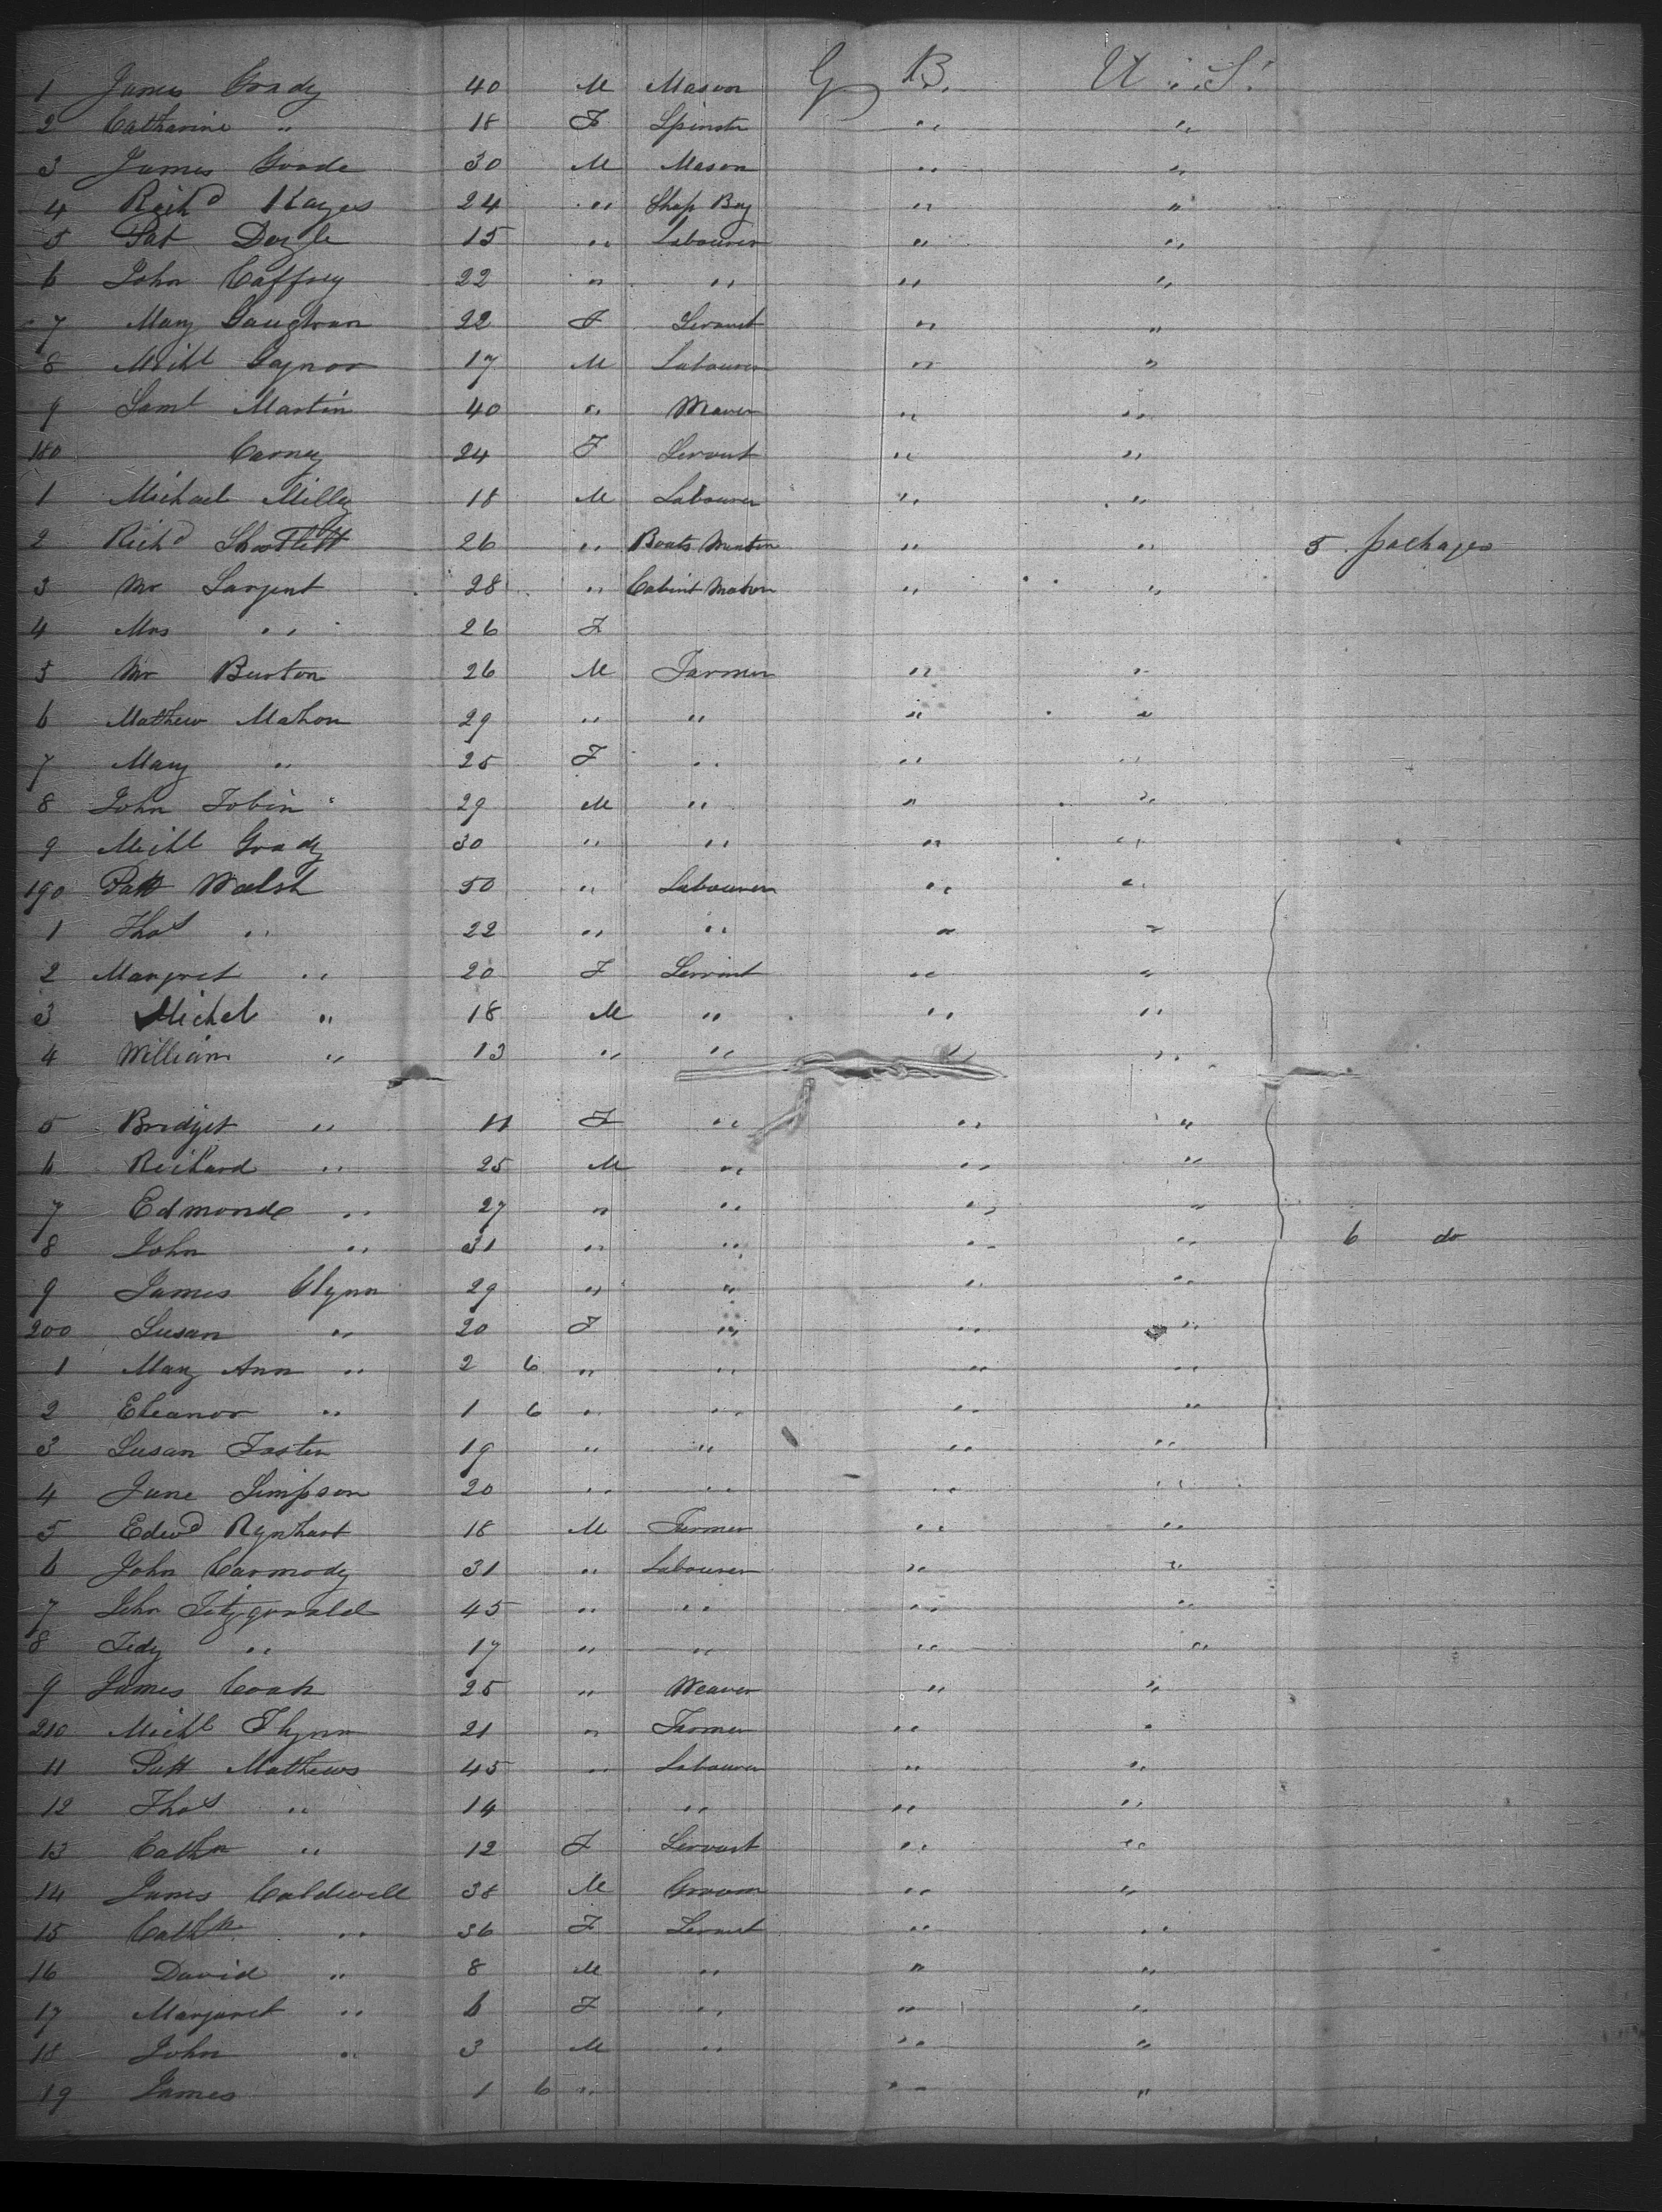 1 James Grady 40 M Mason G B. U. S.
2 Catharine " 18 F Spinster " "
3 James Goode 30 M Mason " "
4 Richd Hayes 24 " Shop Boy " "
5 Pat Doyle 15 " Labourer " "
6 John Caffrey 22 " " " "
7 Mary Gaughran 22 F Servant " "
8 Michl Gaynor 17 M Labourer " "
9 Saml Martin 40 " Weaver " "
180 Carney 24 F Servant " "
1 Michael Milley 18 M Labourer " "
2 Richd 26 " " " 5 packages
3 Mr Sargent 28 " Cabint " "
4 Mrs " 26 F
5 Mr Burton 26 M Farmer " "
6 Mathew Mahon 29 " " " "
7 Mary " 25 F " " "
8 John Tobin 29 M " " "
9 Michl Grady 30 " " " "
190 Patt Walsh 50 " Labourer " "
1 Thos " 22 " " " "
2 Margret " 20 F Servint " "
3 Michel " 18 M " " "
4 William " 13 " " "
5 Bridget " 11 F " " "
6 Richard " 25 M " " "
7 Edmond " 27 " " " "
8 John " 31 " " " " 6 do
9 James Clynn 29 " " " "
200 Susan " 20 F " " "
1 Mary Ann " 2 6 " " " "
2 Eleanor " 1 6 " " " "
3 Susan Foster 19 " " " "
4 Jane Simpson 20 " " " "
5 Edwd Rynhart 18 M Farmer " "
6 John Carmody 31 " Labourer " "
7 John Fitzgerald 45 " " " "
8 Tedy " 17 " " " "
9 James Cook 25 " Weaver " "
210 Michl Flynn 21 " Farmer " "
11 Patt Mathews 45 " Labourer " "
12 Thos " 14 " " "
13 Cathn " 12 F Servant " "
14 James Caldwell 38 M Groom " "
15 Cathn " 36 F Servant " "
16 David " 8 M " " "
17 Margaret " 6 F " " "
18 John " 3 M " " "
19 James 1 6 " " "